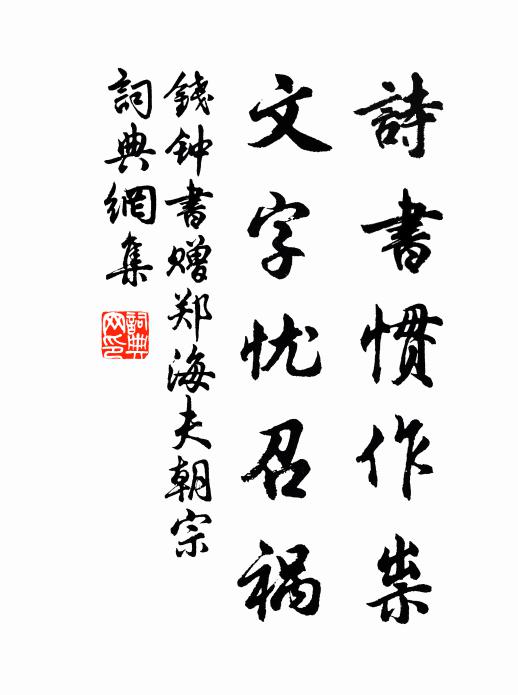 詩書慣作祟
文字忧召祸
錢钟書赠郑海夫朝宗
詞典網集
詞典
网印